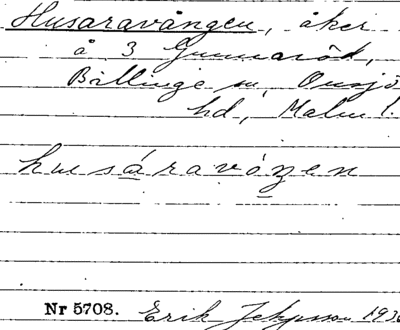 Husaravången, åker
å 3 Gunnaröd,
Billinge sn, Onsjö
hd, Malm. l.
husáravóŋen
Nr 5708. Erik 193